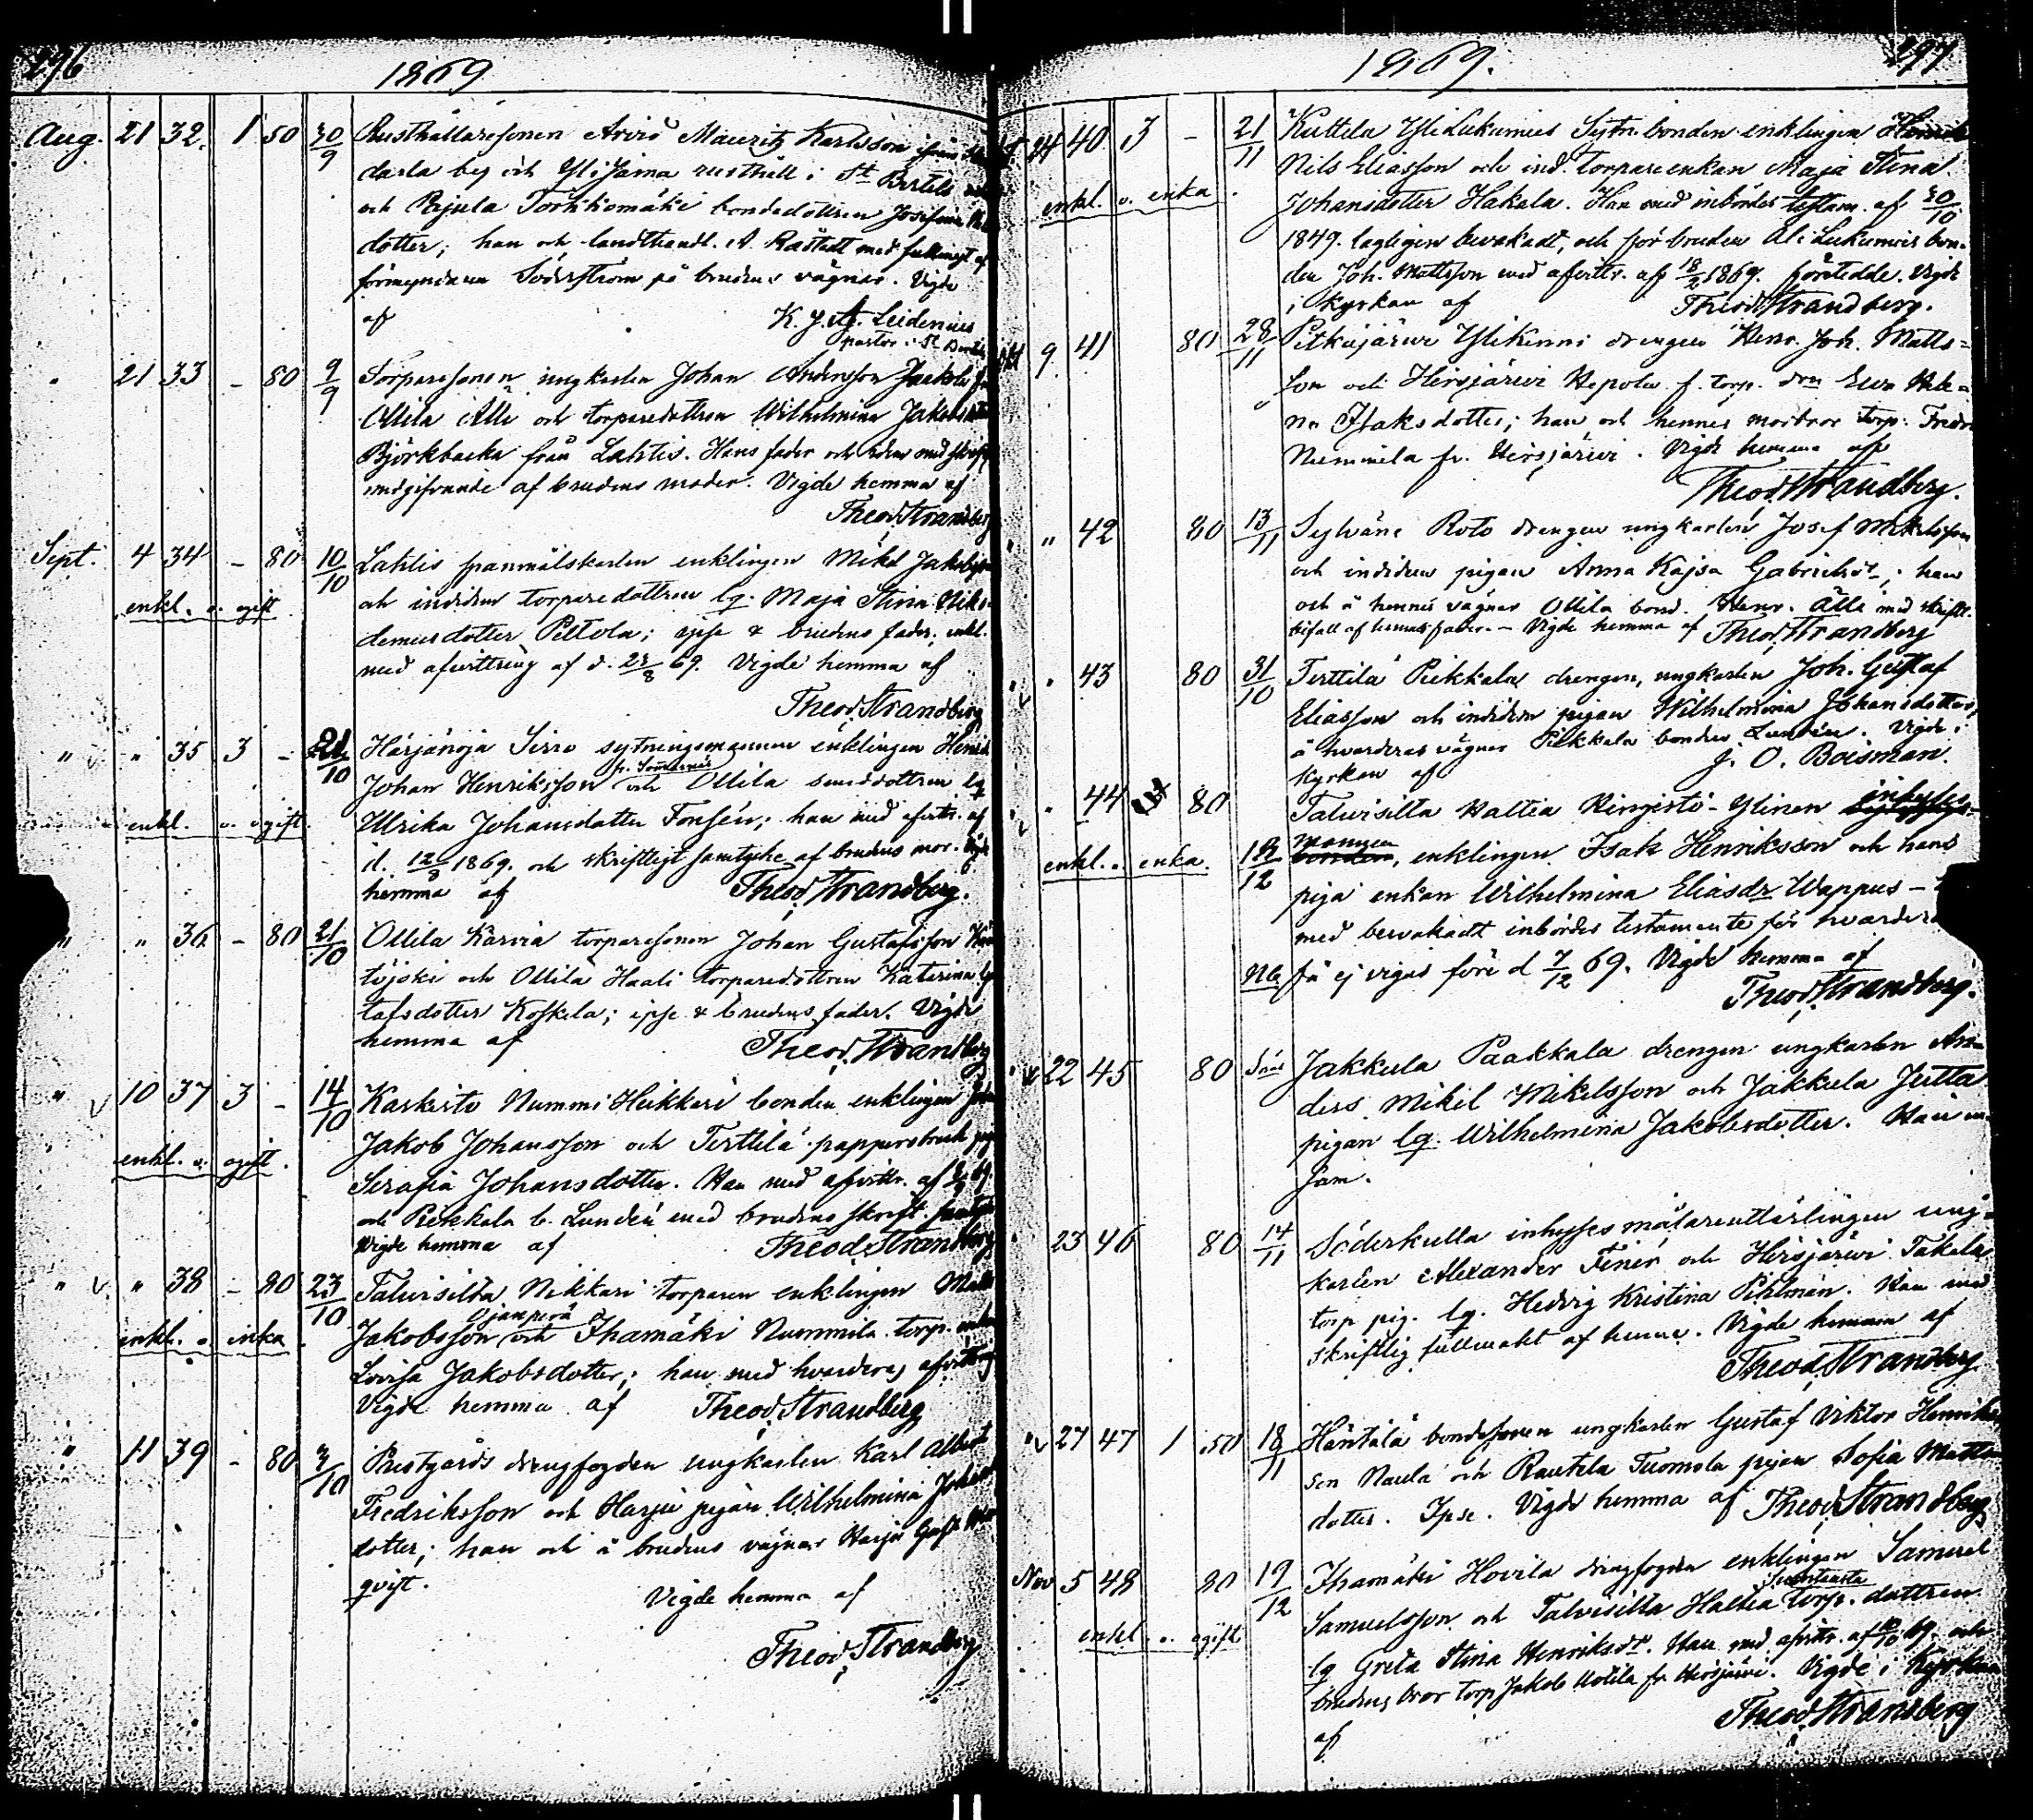 196
1869
Aug. 21 32. 1 50 30/9 Rusthållaresonen Arvid Mauritz Karlsson ifrån
darla by och Yli Jama rusthåll i St Bertils
och Pejula Torkkomäki bondedottren Josefina
dotter; han och landthandl. A. Råstedt med fullmagt af
förmyndaren Söderström på brudens vägnar. Vigde
af K. J. A. Leidenius
pastor i St Bertils
" 21 33 - 80 9/9 Torparesonen ungkarlen Johan Andersson Jaakola
Ollila Alli och torparedottren Wilhelmina Jakobs
Björkbacka från Lahtis. Hans fader och med skriftl.
medgifvande af brudens moder. Vigde hemma af
Theod. Strandberg
Sept. 4 34 - 80 10/10 Lahtis spanmålskarlen enklingen Mikel Jakobsson
enkl. o. ogift
och torparedottren lq. Maja Stina Niko-
demusdotter Peltola; ipse & brudens fader, enkl.
med afvittring af d. 23/8 69. Vigde hemma af
Theod. Strandberg
" " 35 3 - 21/10 Härjänoja Sirro sytningsmannen enklingen Henrik
fr. Somerniemi
Johan Henriksson och Ollila smeddottren lq
enkl. o. ogift.
Ulrika Johansdotter Fonsén; han med afvittr. af
d. 12/8 1869. och skriftligt samtycke af brudens mor. Vigde
hemma af Theod. Strandberg.
" " 36 - 80 21/10 Ollila Karvia torparesonen Johan Gustafsson
töjoki och Ollila Haali torparedottren Katarina
tafsdotter Koskela; ipse & brudens fader. Vigde
hemma af Theod. Strandberg
" v 10 37 3 - 14/10 Kaskisto Nummi Heikkari bonden enklingen
Jakob Johansson och Terttilä pappersbruk
enkl. o. ogift.
Serafia Johansdotter. Han med afvittr. af
och Piekkala b. Lundén med brudens skrift.
Vigde hemma af Theod. Strandberg
" v " 38 - 80 23/10 Talvisilta Nikkari torparen enklingen Matts
Ojanperä
enkl. o. enka.
Jakobsson och Ihamäki Nummila torp. enkan
Lovisa Jakobsdotter; han med hvarderas afvittring
Vigde hemma af Theod. Strandberg
" 11 39 - 80 3/10 Prestgårds drengfogden ungkarlen Karl Albert
Fredriksson och Harju pigan Wilhelmina Johans
dotter; han och å brudens vägnar Harju Gust.
qvist.
Vigde hemma af
Theod. Strandberg
197
1869.
24 40 3 - 21/11 Kuttila Yli Lukumies Sytn. bonden enklingen
Nils Eliasson och ind. torpareenkan Maja Stina
enkl. o. enka.
Johansdotter Hakala. Han med inbördes testam. af 30/10
1849. lagligen bevakadt, och för bruden Ali Lukumies bon-
den Joh. Mattsson med afvittr. af 18/2 1869. företedde. Vigde
i kyrkan af Theod. Strandberg.
Okt 9 41 80 28/11 Pitkäjärvi Ylikinni drengen Henr. Joh. Matts=
son och Hirsjärvi Hepola f. torp. drn Eva Hele=
na Isaksdotter; han och hennes morbror torp. Fredr
Nummila fr. Hirsjärvi. Vigde hemma af
Theod. Strandberg.
" " 42 80 13/11 Sylväne Roto drengen ungkarlen Josef Mikelsson
och pigan Anna Kajsa Gabrielsdr; han
och å hennes vägnar Ollila bond. Henr. Älli med skriftl.
bifall af hennes fader. - Vigde hemma af Theod. Strandberg
" v " 43 80 31/10 Terttilä Piekkala drengen, ungkarlen Joh. Gustaf
Eliasson och pigan Wilhelmina Johansdotter,
å hvarderas vägnar Piekkala bonden Lundén. Vigde i
Kyrkan af J. O. Boisman.
" v " 44 80 Talvisilta Haltia Hingisto-Ylinen inhyses
mannen
enkl. o. enka. 12/12 bonden, enklingen Isak Henriksson och hans
piga enkan Wilhelmina Eliasdr Wappus -
med bevakadt inbördes testamente för hvardera
NB. få ej vigas före d 7/12 69. Vigde hemma af
Theod. Strandberg.
v 22 45 80 Jakkula Paakkala drengen ungkarlen An-
ders Mikel Mikelsson och Jakkula Jutta
pigan lq. Wilhelmina Jakobsdotter. Han en-
sam.
23 46 80 14/11 Söderkulla inhysses målarelärlingen ung=
karlen Alexander Fenér och Hirsjärvi Takala
torp pig. lq. Hedvig Kristina Pihlman. Han med
skriftlig fullmakt af henne. Vigde hemma af
Theod. Strandberg
" v 27 47 1 50 18/11 Häntälä bondesonen ungkarlen Gustaf Viktor Henriks
son Naula och Rautela Tuomola pigan Sofia Matts
dotter. Ipse. Vigde hemma af Theod. Strandberg
Nov 5 48 80 19/12 Ihamäki Hovila drengfogden enklingen Samuel
Samuelsson och Talvisilta Haltia torp. dottren
enkl. o. ogift
lq Greta Stina Henriksdr. Han med afvittr. af 69. och
brudens bror torp Jakob Uotila fr. Hirsjärvi. Vigde i Kyrkan
af Theod. Strandberg